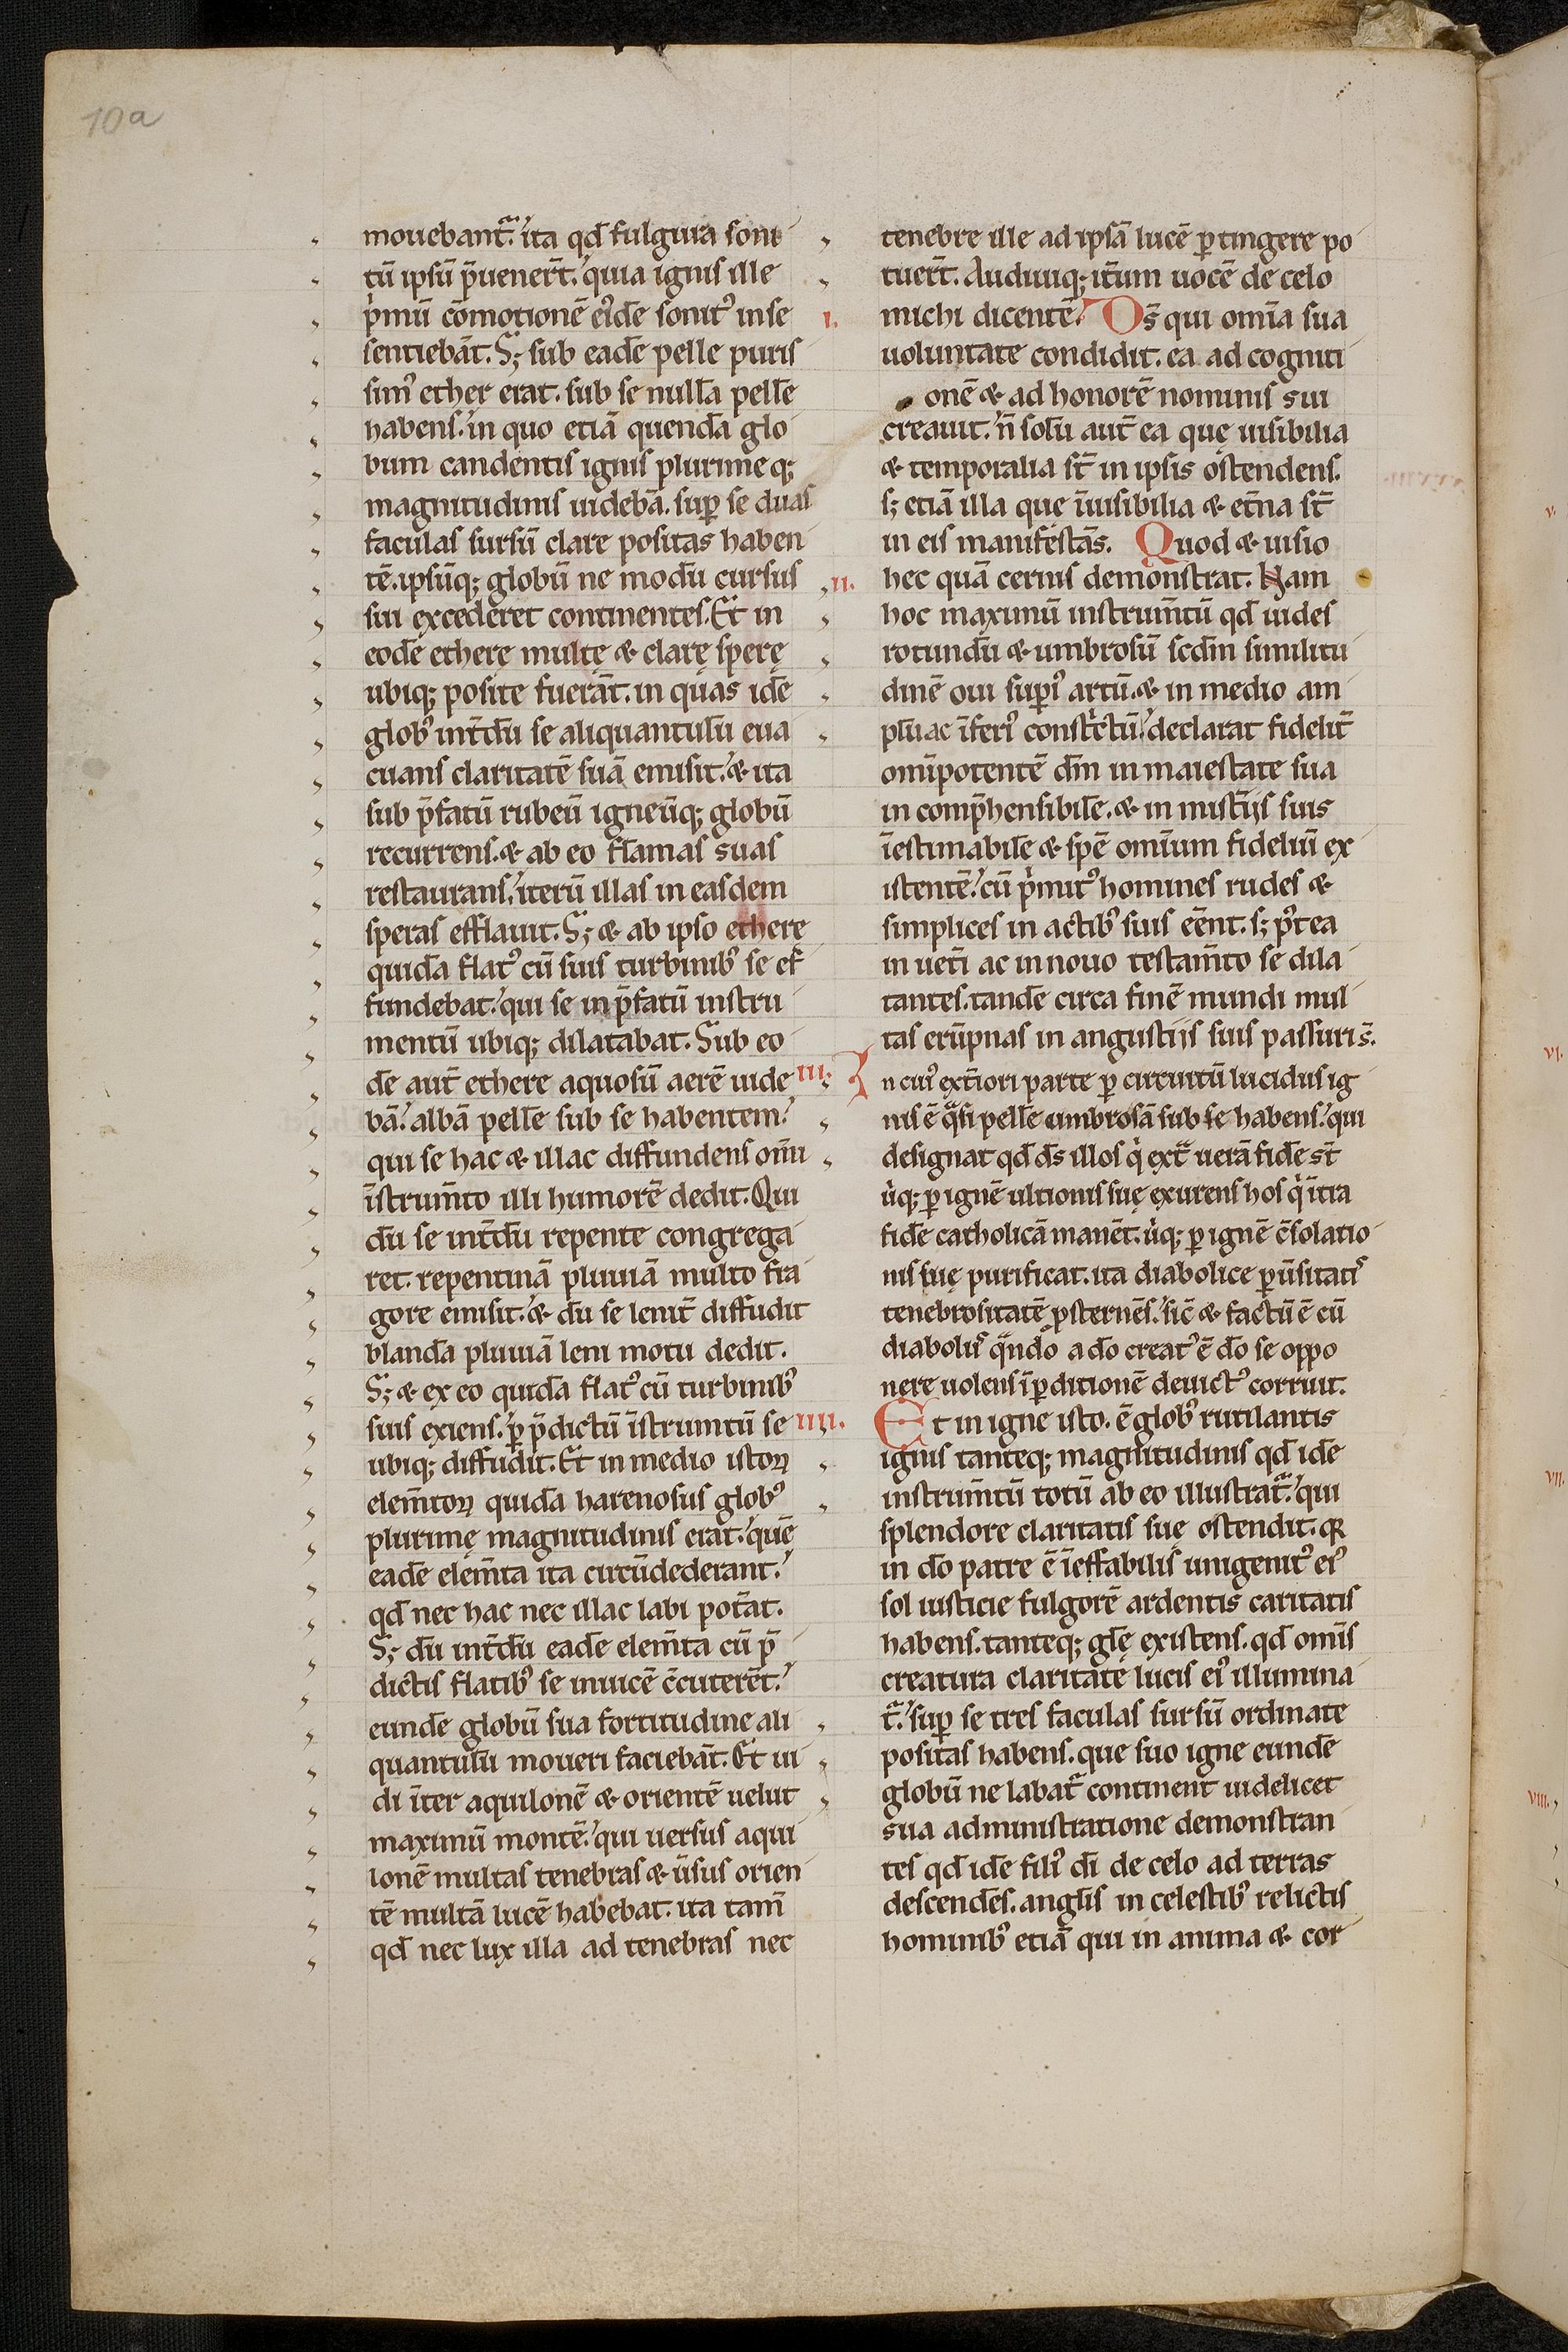 10a
mouebant᷑. ita qd̄ fulgura soni
tū ipsū p̄uenert̄. quia ignis ille
pͥmū cōmotionē eꝰdē sonitꝰ in se
sentiebāt. S; sub eadē pelle puris
simꝰ ether erat. sub se nullā pellē
habens. in quo etiā quendā glo
bum candentis ignis plurimeq;
magnitudinis uidebā. suꝑ se duas
faculas sursū clare positas haben
tē. ipsūq; globū ne modū cursus
sui excederet continentes. Et in
eodē ethere multę & clarę sperę
ubiq; posite fuerāt. in quas idē
globꝰ int̄dū se aliquantulū eua
cuans claritatē suā emisit. & ita
sub p̄fatū rubeū igneūq; globū
recurrens. & ab eo flāmas suas
restaurans. iterū illas in easdem
speras efflauit. S; & ab ipso ethere
quidā flatꝰ cū suis turbinibꝰ se ef
fundebat. qui se in p̄fatū instru
mentū ubiq; dilatabat. Sub eo
dē aut̄ ethere aquosū aerē uide
bā. albā pellē sub se habentem.
qui se hac & illac diffundens om̄i
īstrum̄to illi humorē dedit. Qui
dū se int̄dū repente congrega
ret. repentinā pluuiā multo fra
gore emisit. & dū se lenit̄ diffudit
blandā pluuiā leni motu dedit.
S; & ex eo quidā flatꝰ cū turbinibꝰ
suis exiens. ꝑ p̄dictū īstrumtū se
ubiq; diffudit. Et in medio istoꝝ
elem̄toꝝ quidā harenosus globꝰ
plurimę magnitudinis erat. quē
eadē elem̄ta ita circūdederant.
qd̄ nec hac nec illac labi pot̄at.
S; dū int̄dū eadē elem̄ta cū p̄
dictis flatibꝰ se inuicē c̄cuterēt.
eundē globū sua fortitudine ali
quantulū moueri faciebāt. Et ui
di īter aquilonē & orientē uelut
maximū montē. qui uersus aqui
lonē multas tenebras & ūsus orien
tē multā lucē habebat. ita tam̄
qd̄ nec lux illa ad tenebras nec
tenebre ille ad ipsā lucē ꝑtingere po
tuert̄. Audiuiq; it̄um uocē de celo
i. michi dicentē. Ds̄ qui omīa sua
uoluntate condidit. ea ad cogniti
onē & ad honorē nominis sui
creauit. n̄ solū aut̄ ea quę uisibilia
& temporalia st̄ in ipsis ostendens.
s; etiā illa que īuisibilia & et̄na st̄
in eis manifestās. Quod & uisio
ii. hec quā cernis demonstrat. Nam
hoc maximū instrum̄tū qd̄ uides
rotundū & umbrosū scd̄m similitu
dinē oui suꝑiꝰ artū. & in medio am
plū ac īferiꝰ constͥctū. declarat fidelit̄
omīpotentē dm̄ in maiestate sua
in comp̄hensibilē. & in mist̄ijs suis
īestimabilē & spē omīum fideliū ex
istentē. cū pͥmitꝰ homines rudes &
simplices in actibꝰ suis eēnt. s; pꝰtea
in uet̄i ac in nouo testam̄to se dila
tantes. tandē circa finē mundi mul
tas erūpnas in angustijs suis passuri s̄.
iii. In cuiꝰ ext̄iori parte ꝑ circuitū lucidus ig
nis ē q̄si pellē umbrosā sub se habens. qui
designat qd̄ ds̄ illos qͥ ext̄ uerā fidē st̄
uͥq; ꝑ ignē ultionis suę exurens hos qͥ īt̄a
fidē catholicā manēt. uͥq; ꝑ ignē c̄solatio
nis suę purificat. ita diabolice ꝑūsitatiꝰ
tenebrositatē ꝓsternēs. sic̄ & factū ē cū
diabolus q̄ndo a do creatꝰ ē do se oppo
nere uolens ī ꝑditionē deuictꝰ corruit.
iiii. Et in igne isto. ē globꝰ rutilantis
ignis tanteq; magnitudinis qd̄ idē
instrum̄tū totū ab eo illustrat᷑. qui
splendore claritatis suę ostendit. qꝛ
in do patre ē īeffabilis unigenitꝰ eiꝰ
sol iusticie fulgorē ardentis caritatis
habens. tanteq; glę existens. qd̄ omīs
creatura claritate lucis eiꝰ illumina
t᷑. suꝑ se tres faculas sursū ordinate
positas habens. que suo igne eundē
globū ne labat᷑ continent uidelicet
sua administratione demonstran
tes qd̄ idē filiꝰ dī de celo ad terras
descendēs. anglis in celestibꝰ relictis
hominibꝰ etiā qui in anima & cor
v.
vi.
vii.
viii.